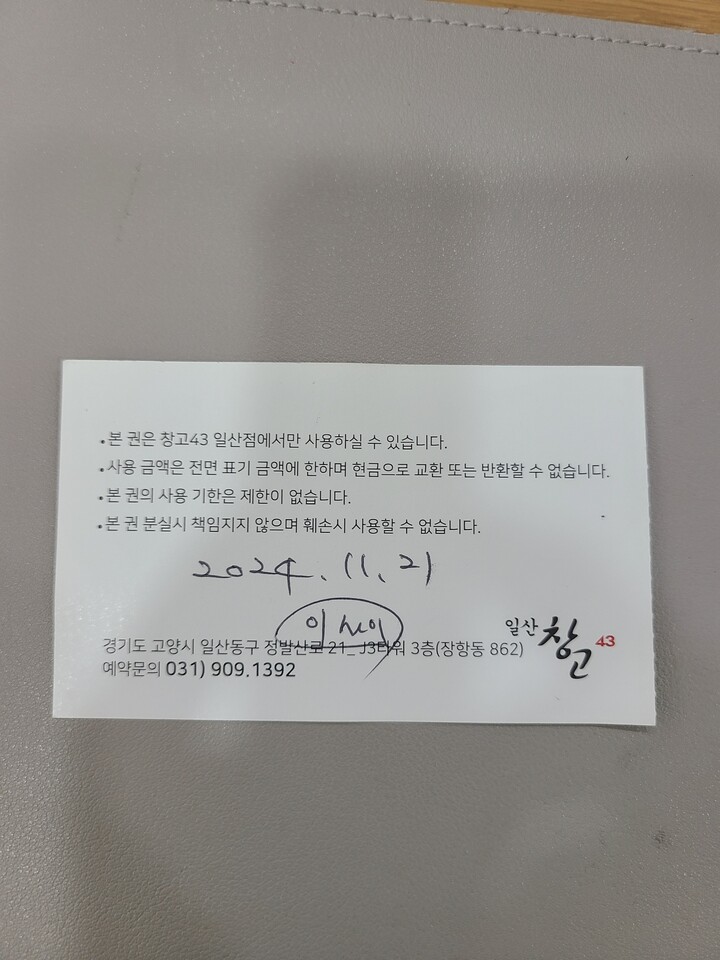 • 본 권은 창고43 일산점에서만 사용하실 수 있습니다.
• 사용 금액은 전면 표기 금액에 한하며 현금으로 교환 또는 반환할 수 없습니다.
• 본 권의 사용 기한은 제한이 없습니다.
• 본 권 분실시 책임지지 않으며 훼손시 사용할 수 없습니다.
2024. 11. 21
경기도 고양시 일산동구 정발산로 21_ J3타워 3층(장항동 862)
예약문의 031) 909.1392
일산 창고 43